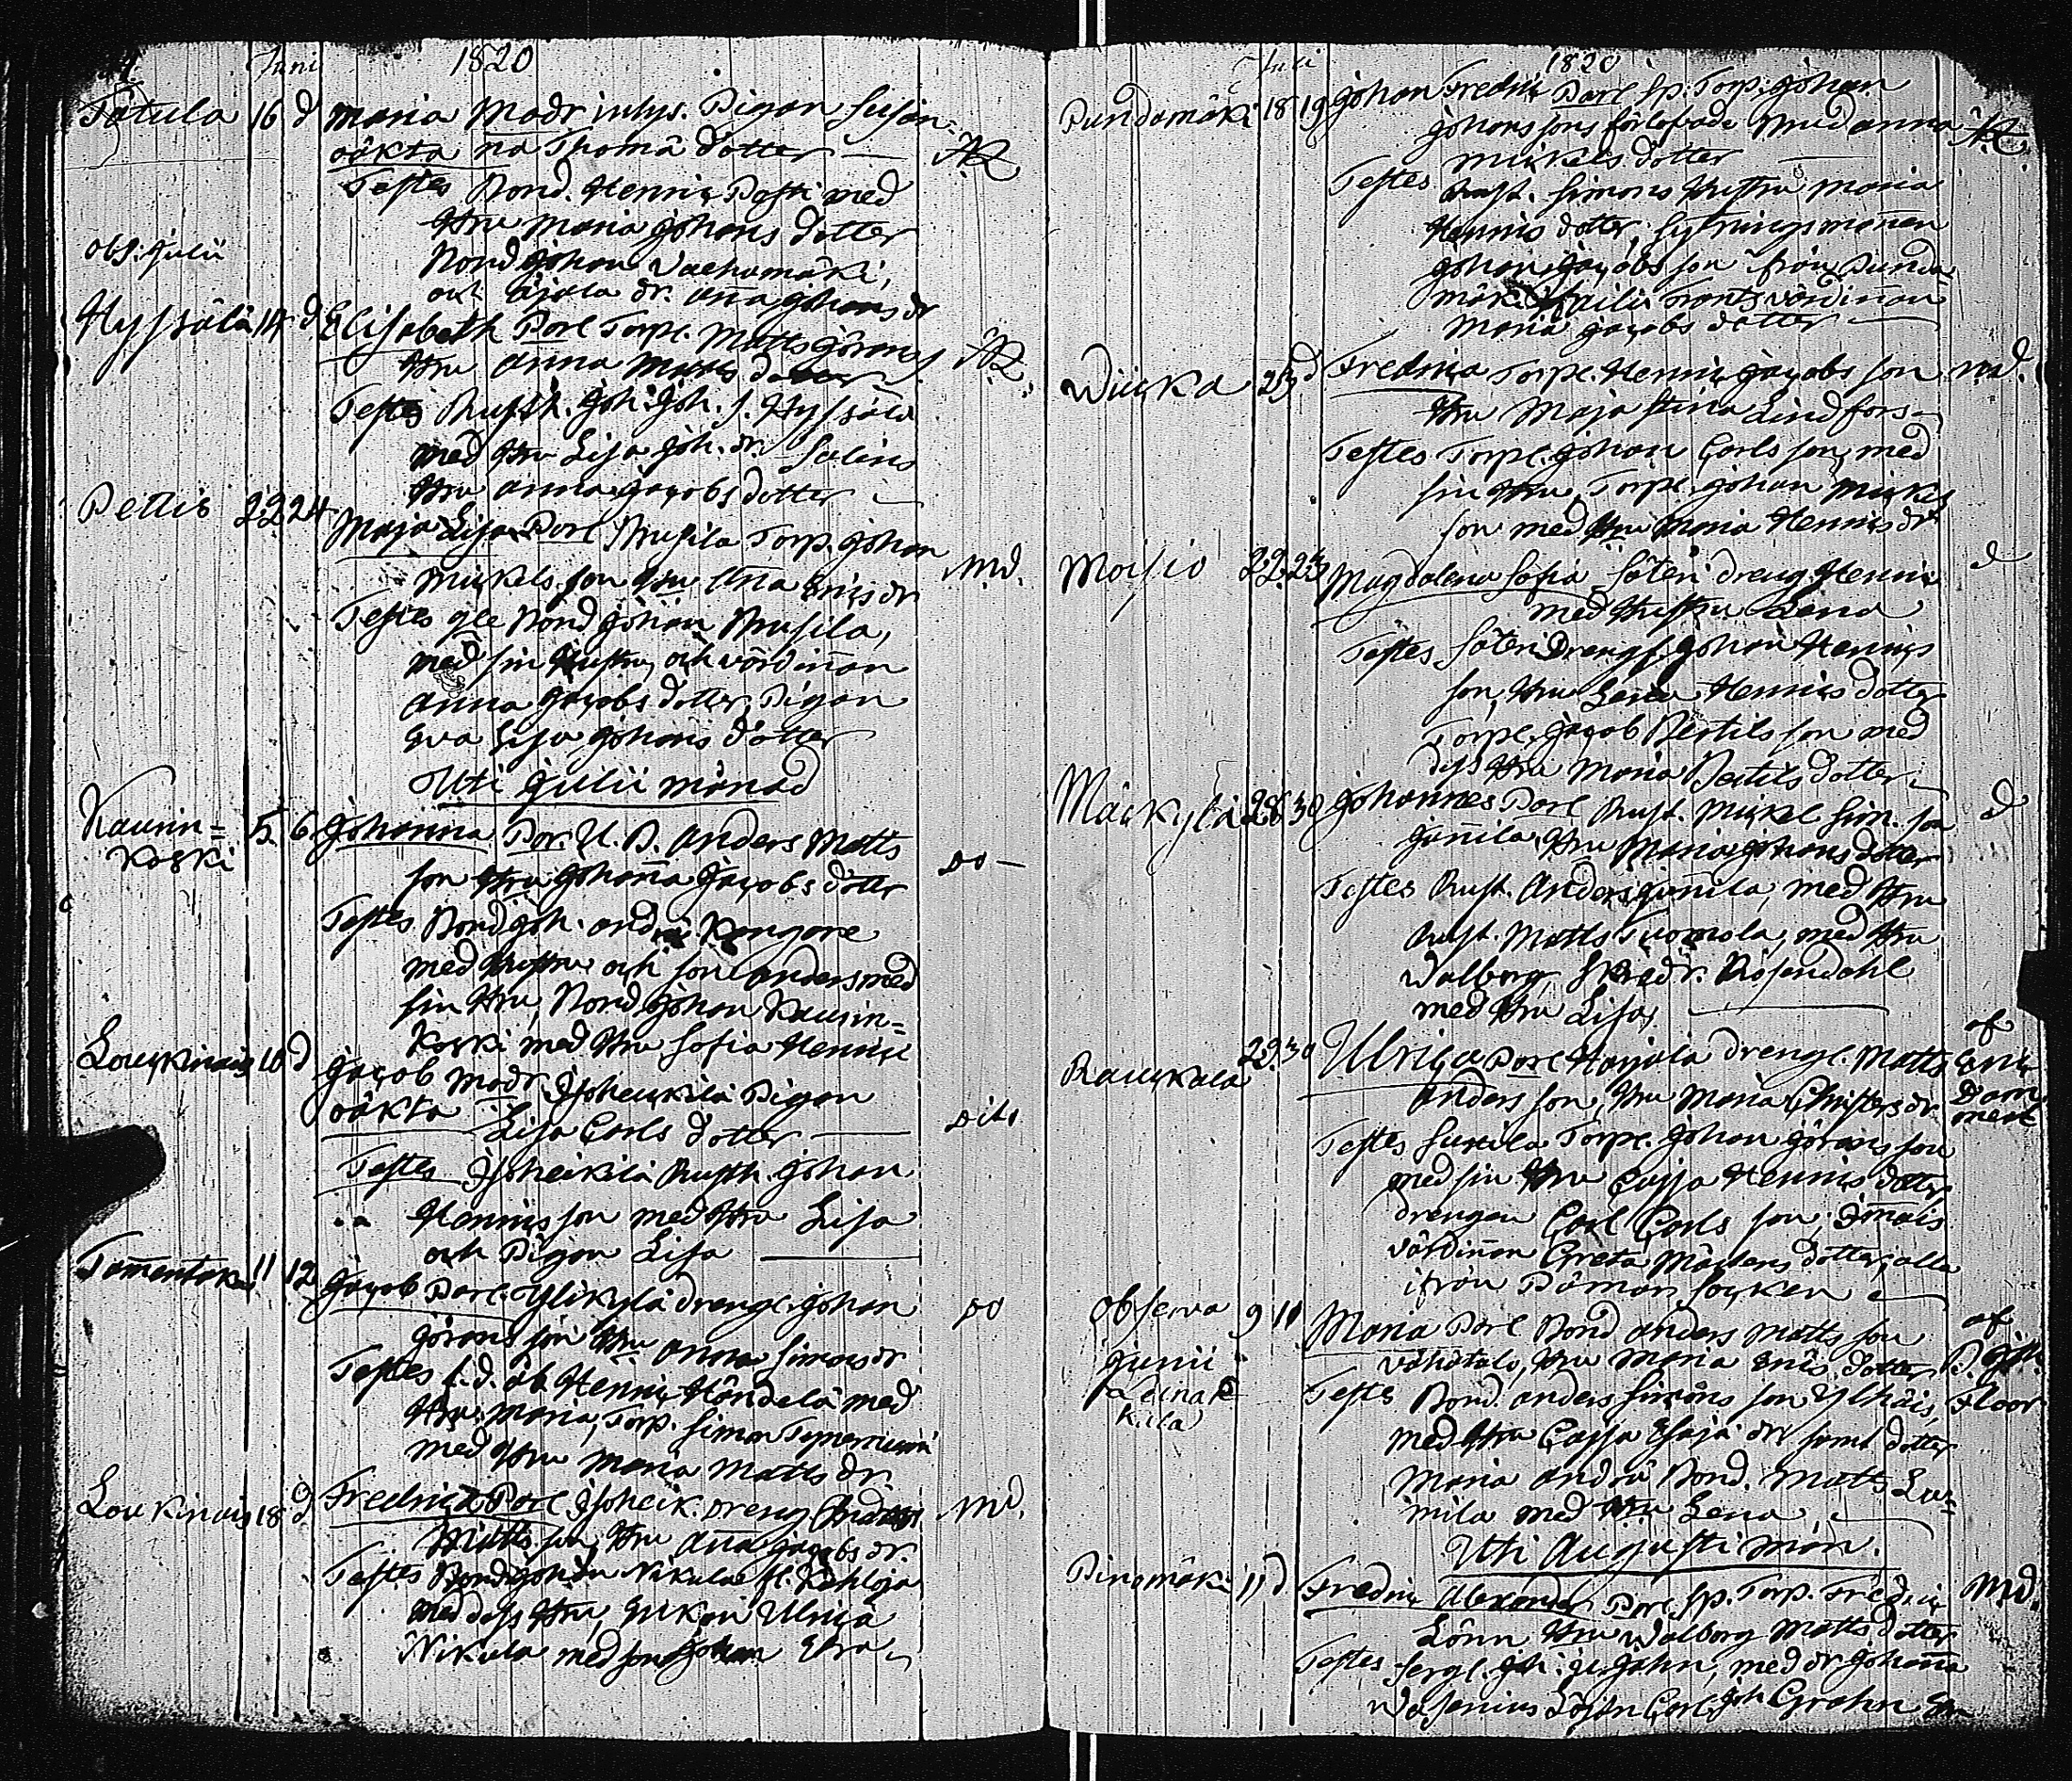 Juni 1820
Tåtula 16 d Maria Modr inhys. Pigan Susan=
oäkta na Thomä dotter —
Testes Bond. Henric Posti med
Hru Maria Johans dotter
Bond Johan Vachamäki,
obs. Julii
och Äjala dr. Anna Johans dr
Hyssälä 14 d Elisabeth Parl Torpl. Matts Görans s.
Hru Anna Matts dotter
Testes Rusth. Joh. Joh. s. Hyssälä
med Hru Lisa Joh. dr. Salins
Hru Anna Jacobs dotter
Pellis 22 24 Maja Lisa Parl Musila Torp. Johan
Mickels son Hru Anna Erics dr Md.
Testes gle Bond Johan Musila,
med sin Hustru, och värdinnan
Anna Jacobs dotter, Pigan
Eva Lisa Johans dotter
Uti Julii månad
Kauin= 5 6 Johanna Par. U. B. Anders Matts
koski son Hru Johanna Jacobs dotter do —
Testes Bond Joh. And. Kangare
med Hustru och son Anders med
sin Hru, Bond. Johan Kauin=
koski med Hru Sofia Henrics
Louckinais 10 d Jacob Modr. Isoheickilä Pigan
oäkta Lisa Carls dotter — dito
Testes Isoheikilä Rusth. Johan
Henrics son med Hru Lisa
och Pigan Lisa —
Tammentaka 11 12 Jacob Parl. Ylikylä drengl. Johan do
Görans son Hru Anna Simons dr
Testes f.d. åb Henric Händelä med
Hru Maria, Torp. Simon
med Hru Maria Matts dr.
Loukinais 18 d Fredrica Parl Isoheik. dreng Anders Md.
Matts son, Hru Anna Jacobs dr.
Testes Bond Johan Nikula
med dess Hru, Enkan Ulrica
Nikula med son Johan
Juli 1820
Pundamäki 18 19 Johan Fredric Parl Sp. Torp. Johan
Johans sons förlofvade Brud Anna
Mickels dotter —
Testes Rust. Simons Hustru Maria
Henrics dotter, Sytningsmannen
Johan Jacobs son från Punda
mäki, värdinnan
Maria Jacobs dotter —
Wiicka 23 d Fredrica Torpl. Henric Jacobs son Md.
Hru Maja Stina Lindfors
Testes Torpl. Johan Carls son, med
sin Hru, Torpl. Johan Mickels
son med Hru Maria Henrics dr
Moisio 22 23 Magdalena Sofia Säteri dreng Henric d
med Hustru Lena
Testes Säteri Drengl. Johan Henrics
son, Hru Lena Henrics dotter
Torpl. Jacob Bertils son med
dess Hru Maria Bertils dotter
Mäckylä 28 30 Johannes Parl Rust. Mickel Sim. son d
Jannila, Hru Maria Johans dotter
Testes Rust. Anders Jannila, med Hru
Rust. Matts Tuomola, med Hru
Walborg, Skrädr. Rosendahl
med Hru Lisa, —
Rauckala 29 30 Ulrica Parl Harjula drengl. Matts af
Anders son, Hru Maria Christers dr. Eric
Dammert
Testes Suckila Torpl. Johan Görans son
med sin Hru Cajsa Henrics dotter,
drengen Carl Carls son,
värdinnan Greta Mårtens dotter, alla
ifrån Pämar Socken
Observa 9 11 Maria Parl Bond Anders Matts son af
Junii Vähätalo, Hru Maria Erics dotter
Leinakkala
Testes Bond. Anders Simons son Ylhäis, Floor
med Hru Cajsa Esaja dr samt dotter
Maria Andrä Bond. Matts Lu=
mila med Hru Lena
Uti Augusti mån.
Pinomäki 11 d Fredric Alexander Parl Sp. Torp. Fredric Md.
Lönn Hru Walborg Matts dotter
Testes Sergl. Joh. Jahn, med dr Johanna
Carl Joh Grahn